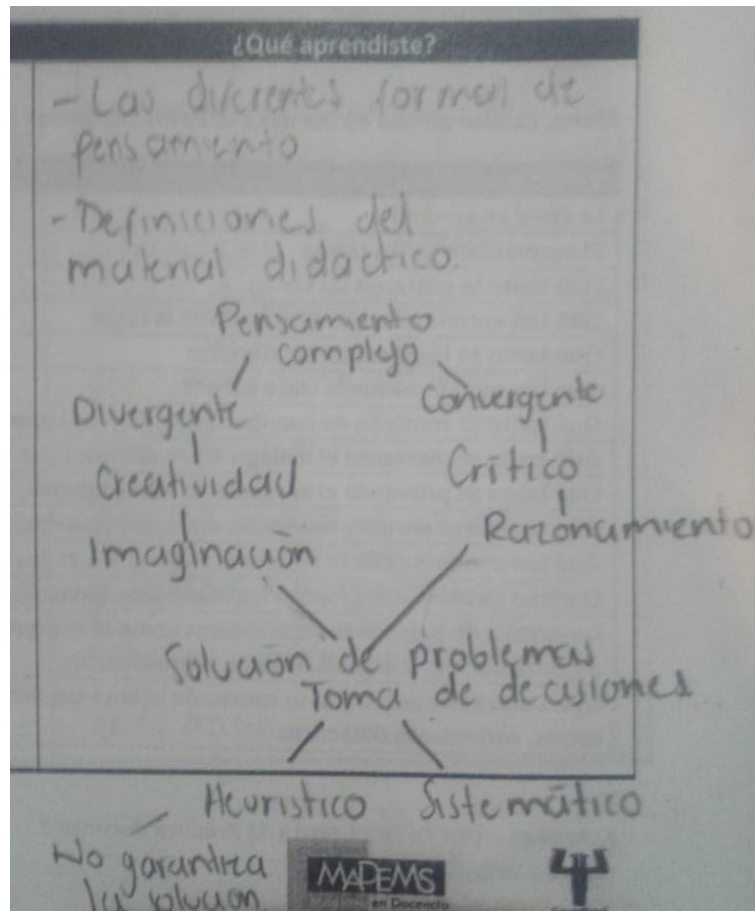 ¿Qué aprendiste?
- Las diferentes formas de
pensamiento
- Definiciones del
material didactico.
Pensamiento
complejo
Divergente Convergente
Creatividad Crítico
Imaginación Razonamiento
Solución de problemas
Toma de decisiones
Heuristico Sistemático
No garantiza
la solución
MADEMS
en Docencia